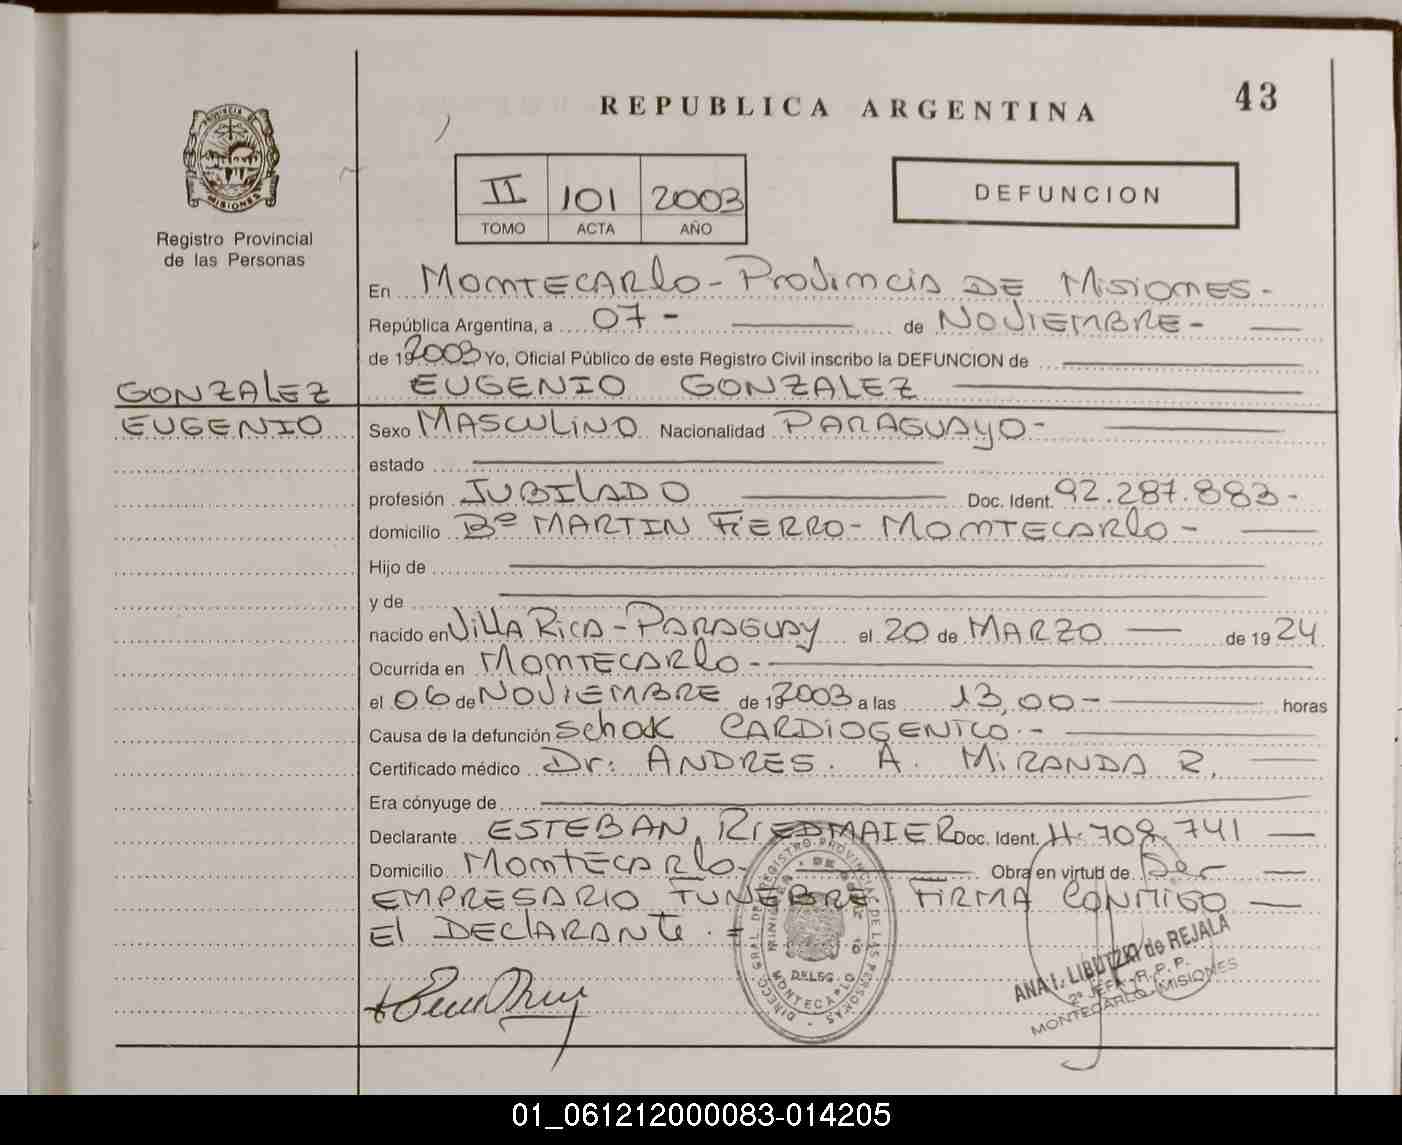 43
REPUBLICA ARGENTINA
PROVINCIA DE
MISIONES
Registro Provincial
de las Personas
II 101 2003
TOMO ACTA AÑO
DEFUNCION
En MONTECARlo - Provincia DE MisioNES -
República Argentina, a 07 - de NOVIEMBRE -
de 19 2003 Yo, Oficial Público de este Registro Civil inscribo la DEFUNCION de
GONZALEZ EUGENIO GONZALEZ
EUGENIO
Sexo MASCULINO Nacionalidad PARAGUAYO -
estado
profesión JUBILADO Doc. Ident. 92.287.883 -
domicilio Bº MARTIN FIERRO - MONTECARLO -
Hijo de
y de
nacido en VillA RicA - PARAGUAY el 20 de MARZO de 19 24
Ocurrida en MONTECARLO -
el 06 de NOVIEMBRE de 19 2003 a las 13,00 - horas
Causa de la defunción Schok CARDIOGENICO. -
Certificado médico Dr: ANDRES. A. MIRANDA R.
Era cónyuge de
Declarante ESTEBAN RIEDMAIER Doc. Ident. 4.709.741
Domicilio MONTECARLO - Obra en virtud de Ser
EMPRESARIO FUNEBRE FIRMA CONMIGO
El DEClARANTE. =
DIRECC. GRAL. DEL REGISTRO PROVINCIAL DE LAS PERSONAS
DELEG.
ANA I. LIBUTZKI de REJALA
2ª JEFA R. P. P.
MONTECARLO - MISIONES
01_061212000083-014205